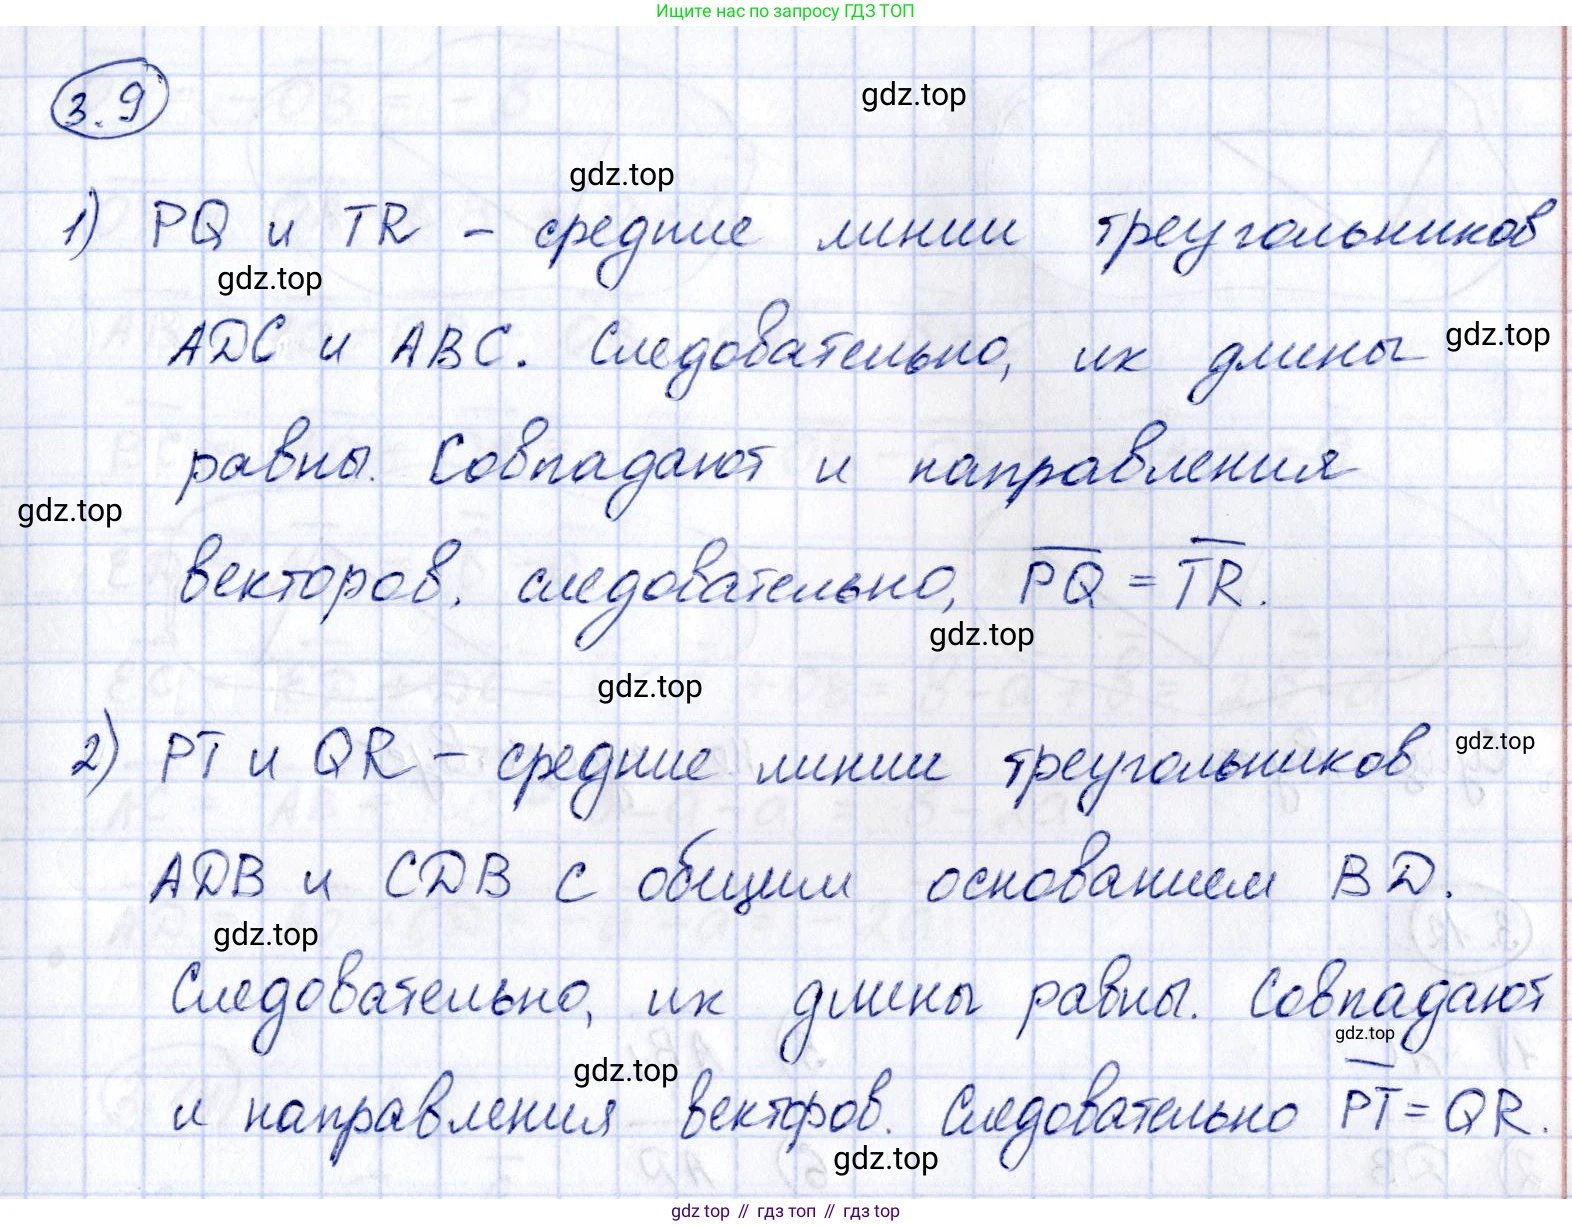 Ищите нас по запросу ГДЗ ТОП
3.9
gdz.top
gdz.top
1) PQ и TR - средние линии треугольников
gdz.top
ADC и ABC. Следовательно, их длины
gdz.top
равны. Совпадают и направления
gdz.top
векторов. следовательно, P̅Q̅ = T̅R̅.
gdz.top
gdz.top
2) PT и QR - средние линии треугольников
gdz.top
ADB и CDB с общим основанием BD.
gdz.top
Следовательно, их длины равны. Совпадают
gdz.top
gdz.top
и направления векторов. Следовательно P̅T̅ = QR.
gdz.top
gdz top // гдз топ // гдз top